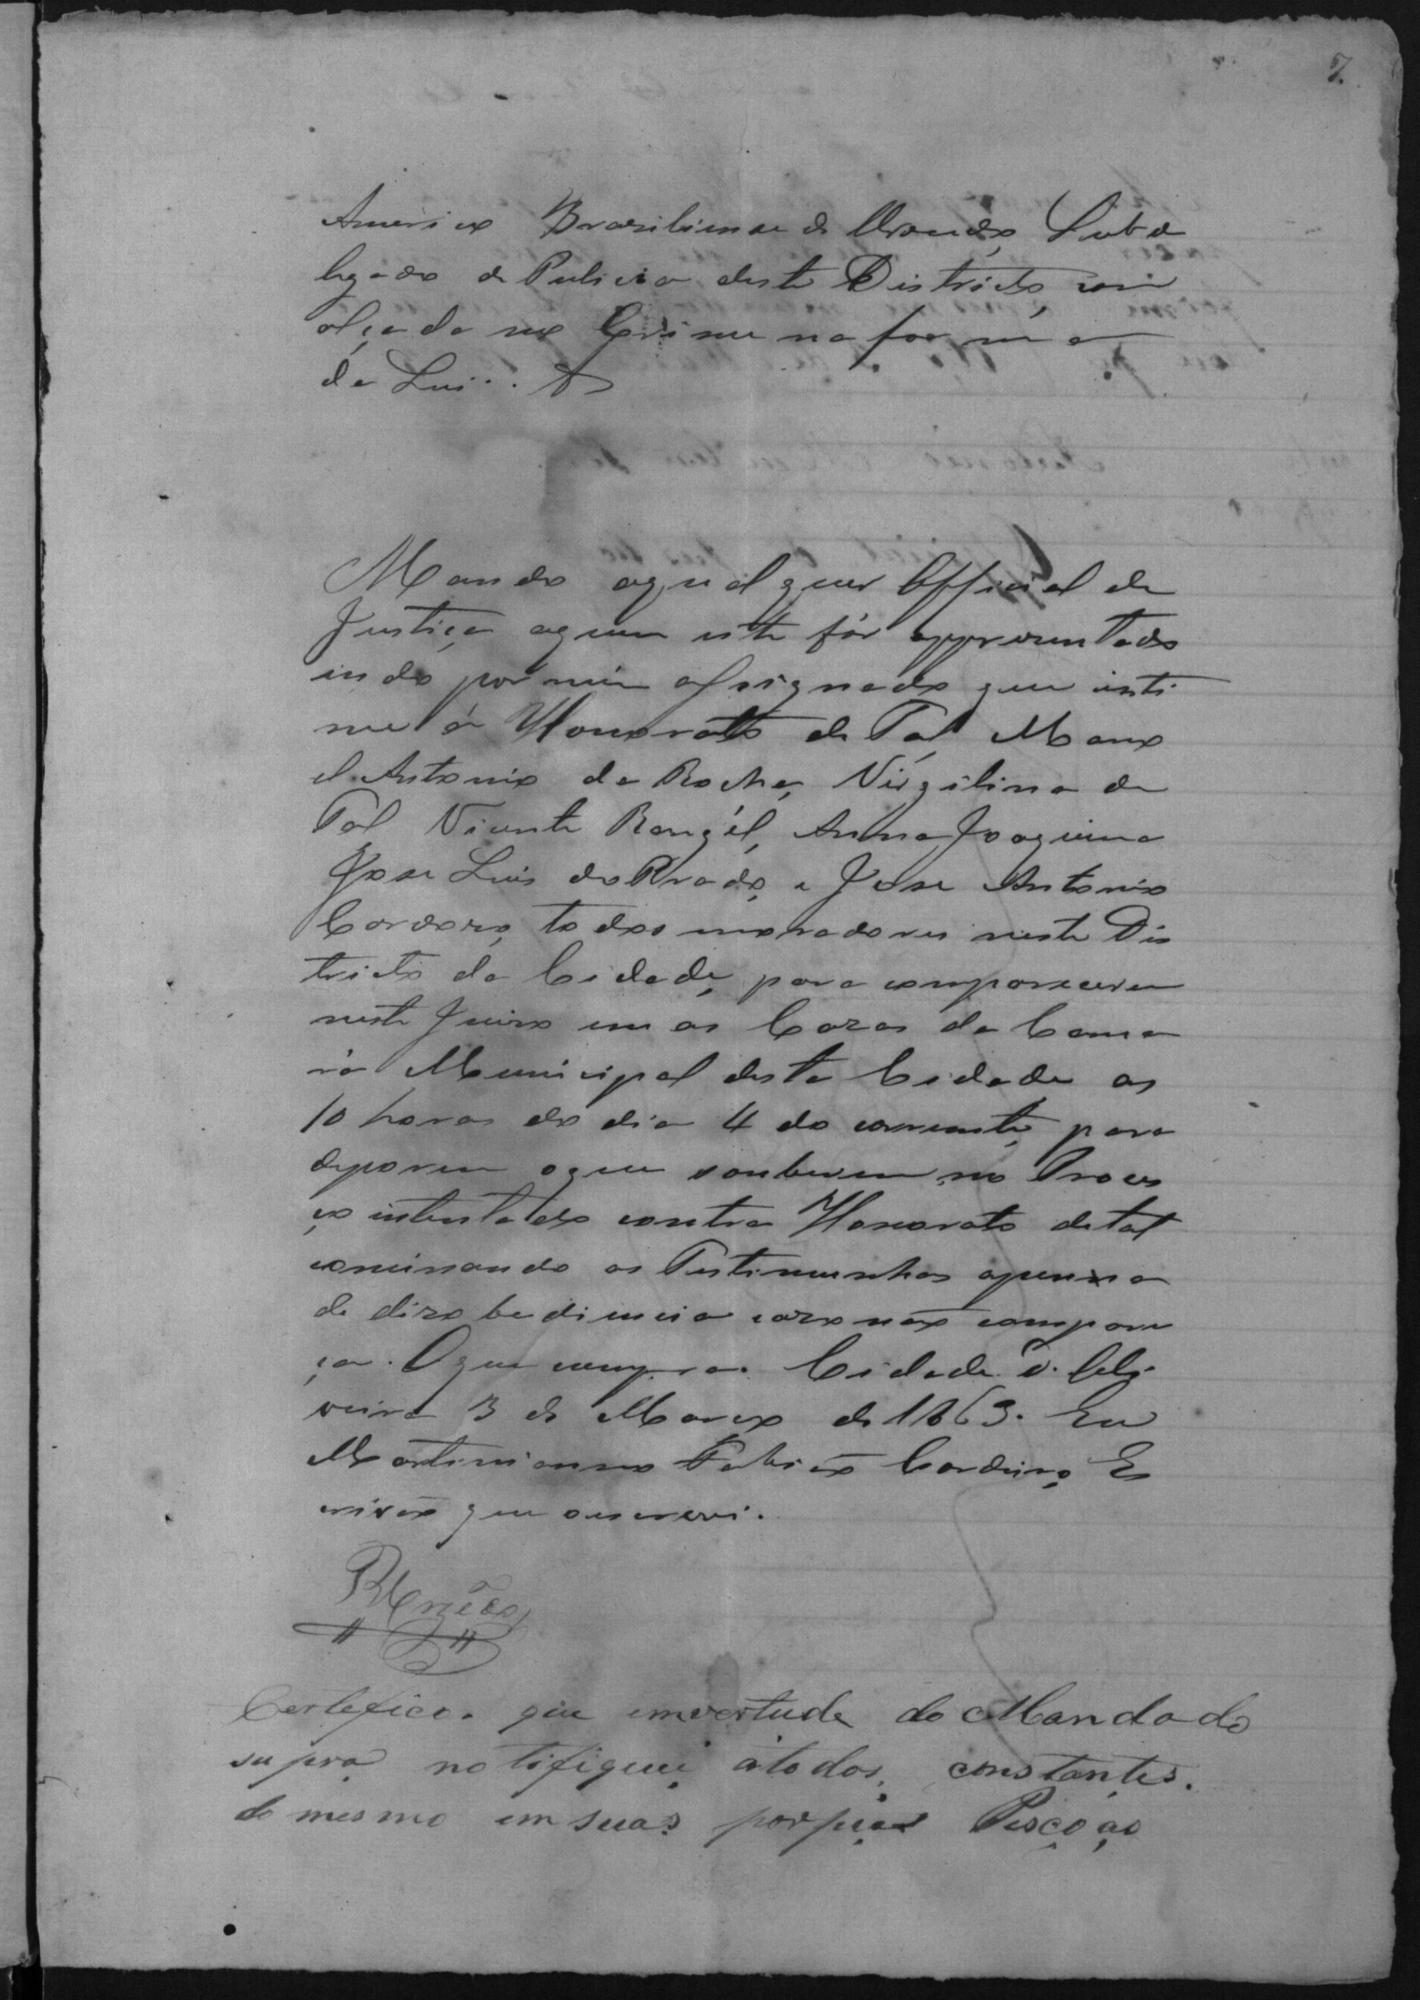 7.
Americo Brasiliense de Urzedo, Subde
legado de Pulicia deste Districto com
alçada no Crime na forma
da Lei. . &
Mando aqualquer Official de
Justiça, aquem este fôr appresentado
indo por mim assignado que inti
me á Honorato de Tal, Mano
el Antonio da Rocha, Virgilina de
Tal Vicente Rangél, Anna Joaquina
Jose Luis do Prado, e Jose Antonio
Cordero, todos moradores neste Dis
tricto da Cidade, para comparecerem
neste Juizo em as Cazas da Cama
rá Municipal desta Cidade as
10 horas do dia 4 do corrente, para
deporem oque souberem no Proces
ço intentado contra Honorato detal
cominando as Testimunhas apenna
de dizobediencia cazo não compare
ça. Oque cumpra. Cidade d.
veira 3 de Março de 1863. Eu
Martimianno Fabião Cordeiro, Es
crivão que oescrevi.
Certefico. que emvertude do Mandado
supra notifiquei átodos, constantes.
do mesmo em suas porpias Pesçoas